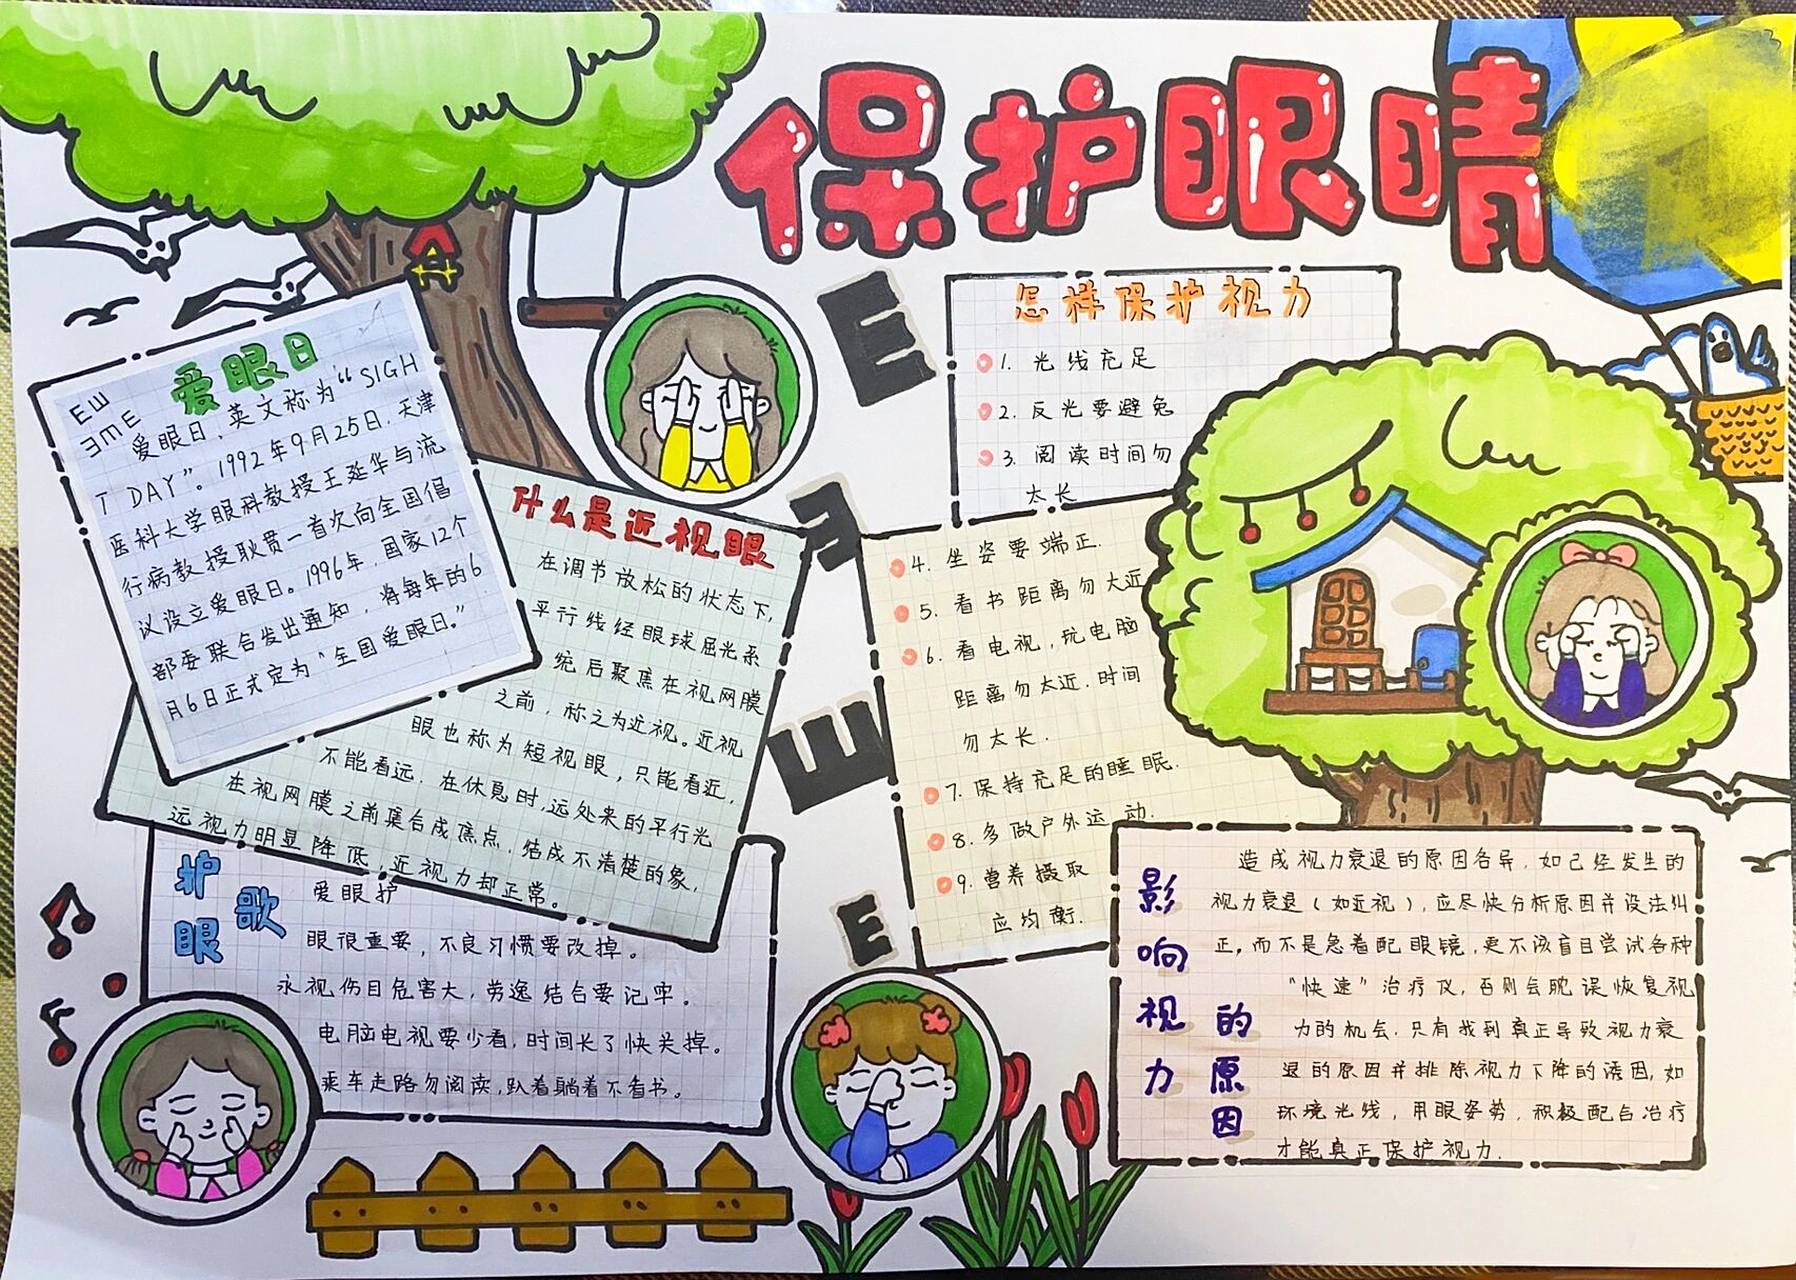 保护眼睛
爱眼日
EW
ƎmE
爱眼日、英文称为“SIGH
T DAY”。1992年9月25日.天津
医科大学眼科教授王延华与流
行病教授耿贯一首次向全国倡
议设立爱眼日。1996年.国家12个
部委联合发出通知，将每年的6
月6日正式定为“全国爱眼日。”
什么是近视眼
在调节放松的状态下，
平行线经眼球屈光系
统后聚焦在视网膜
之前，称之为近视。近视
眼也称为短视眼，只能看近，
不能看远．在休息时,远处来的平行光
在视网膜之前集合成焦点．结成不清楚的象，
远视力明显降低,近视力却正常。
护眼歌
爱眼护
眼很重要，不良习惯要改掉。
永视伤目危害大，劳逸结合要记牢。
电脑电视要少看，时间长了快关掉。
乘车走路勿阅读，趴着躺着不看书。
E
Ǝ
Ш
E
怎样保护视力
1. 光线充足
2. 反光要避免
3. 阅读时间勿
太长
4. 坐姿要端正.
5. 看书距离勿大近
6. 看电视，玩电脑
距离勿太近．时间
勿太长．
7. 保持充足的睡眠．
8. 多做户外运动．
9. 营养摄取
应均衡．
影响视力的原因
造成视力衰退的原因各异．如已经发生的
视力衰退（如近视），应尽快分析原因并设法纠
正，而不是急着配眼镜，更不该盲目尝试各种
“快速”治疗仪，否则会耽误恢复视
力的机会．只有找到真正导致视力衰
退的原因并排除视力下降的诱因，如
环境光线，用眼姿势，积极配合治疗
才能真正保护视力．